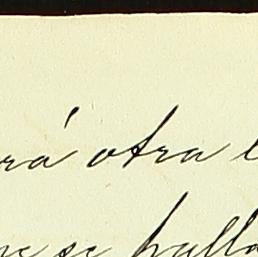 rá otra l
se halla